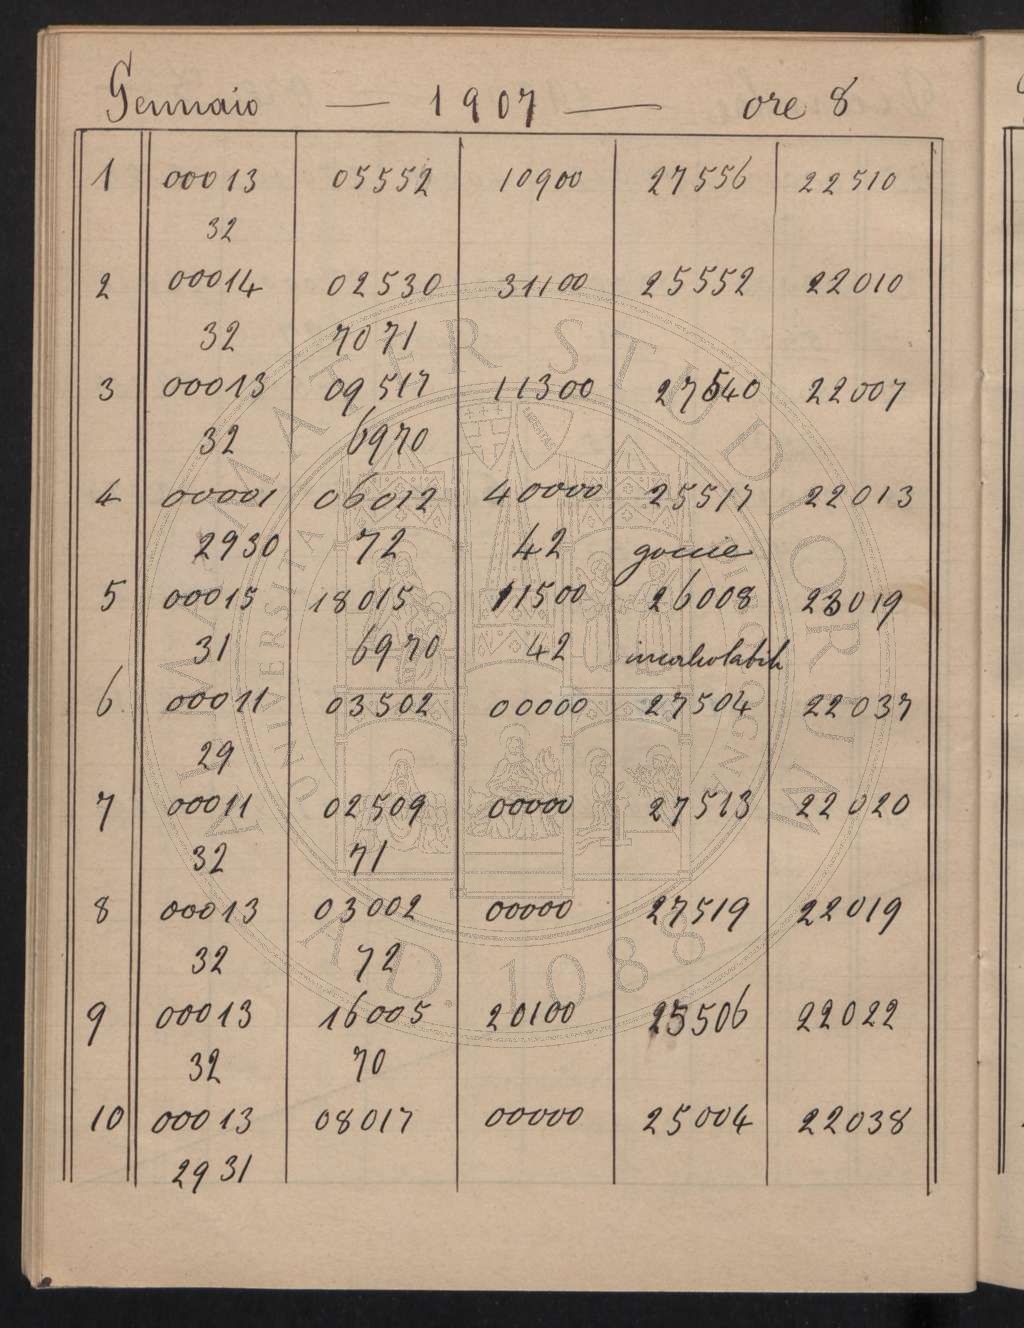 Gennaio — 1907 — ore 8
1 00013 05552 10900 27556 22510
32
2 00014 02530 31100 25552 22010
32 7071
3 00013 09517 11300 27540 22007
32 6970
4 00001 06012 40000 25517 22013
2930 72 42 gocce
5 00015 18015 11500 26008 23019
31 6970 42 incalcolabili
6 00011 03502 00000 27504 22037
29
7 00011 02509 00000 27513 22020
32 71
8 00013 03002 00000 27519 22019
32 72
9 00013 16005 20100 25506 22022
32 70
10 00013 08017 00000 25004 22038
2931
ALMA MATER STUDIORUM
UNIVERSITÀ DI BOLOGNA
A.D. 1088
LIBERTAS